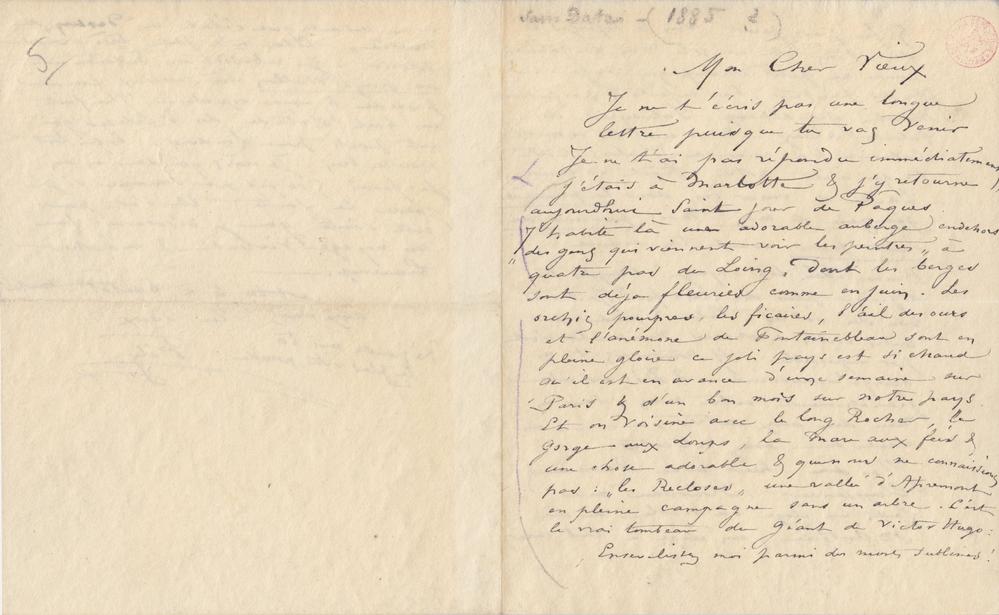 5/
Sans Date - (1885 ?)
Mon Cher Vieux
Je ne t'écris pas une longue
lettre puisque tu vas venir
Je ne t'ai pas répondu immédiatement
j'étais à Marlotte & j'y retourne
aujourd'hui Saint jour de Pâques.
J'habite là une adorable auberge en dehors
"des gens qui viennent voir les peintres", à
quatre pas du Loing, dont les berges
sont déja fleuries comme en juin. Les
orchis pourpres, les ficaires, l'ail des ours
et l'anémone de Fontainebleau sont en
pleine gloire ce joli pays est si chaud
qu'il est en avance d'une semaine sur
Paris & d'un bon mois sur notre pays.
Et on voisine avec le long Rocher, la
Gorge aux Loups, la Mare aux fées &
une chose adorable & que nous ne connaissions
pas : "les Recloses", une vallée d'Apremont
en pleine campagne sans un arbre. C'est
le vrai tombeau du Géant de Victor Hugo :
Ensevelissez moi parmi des monts sublimes !